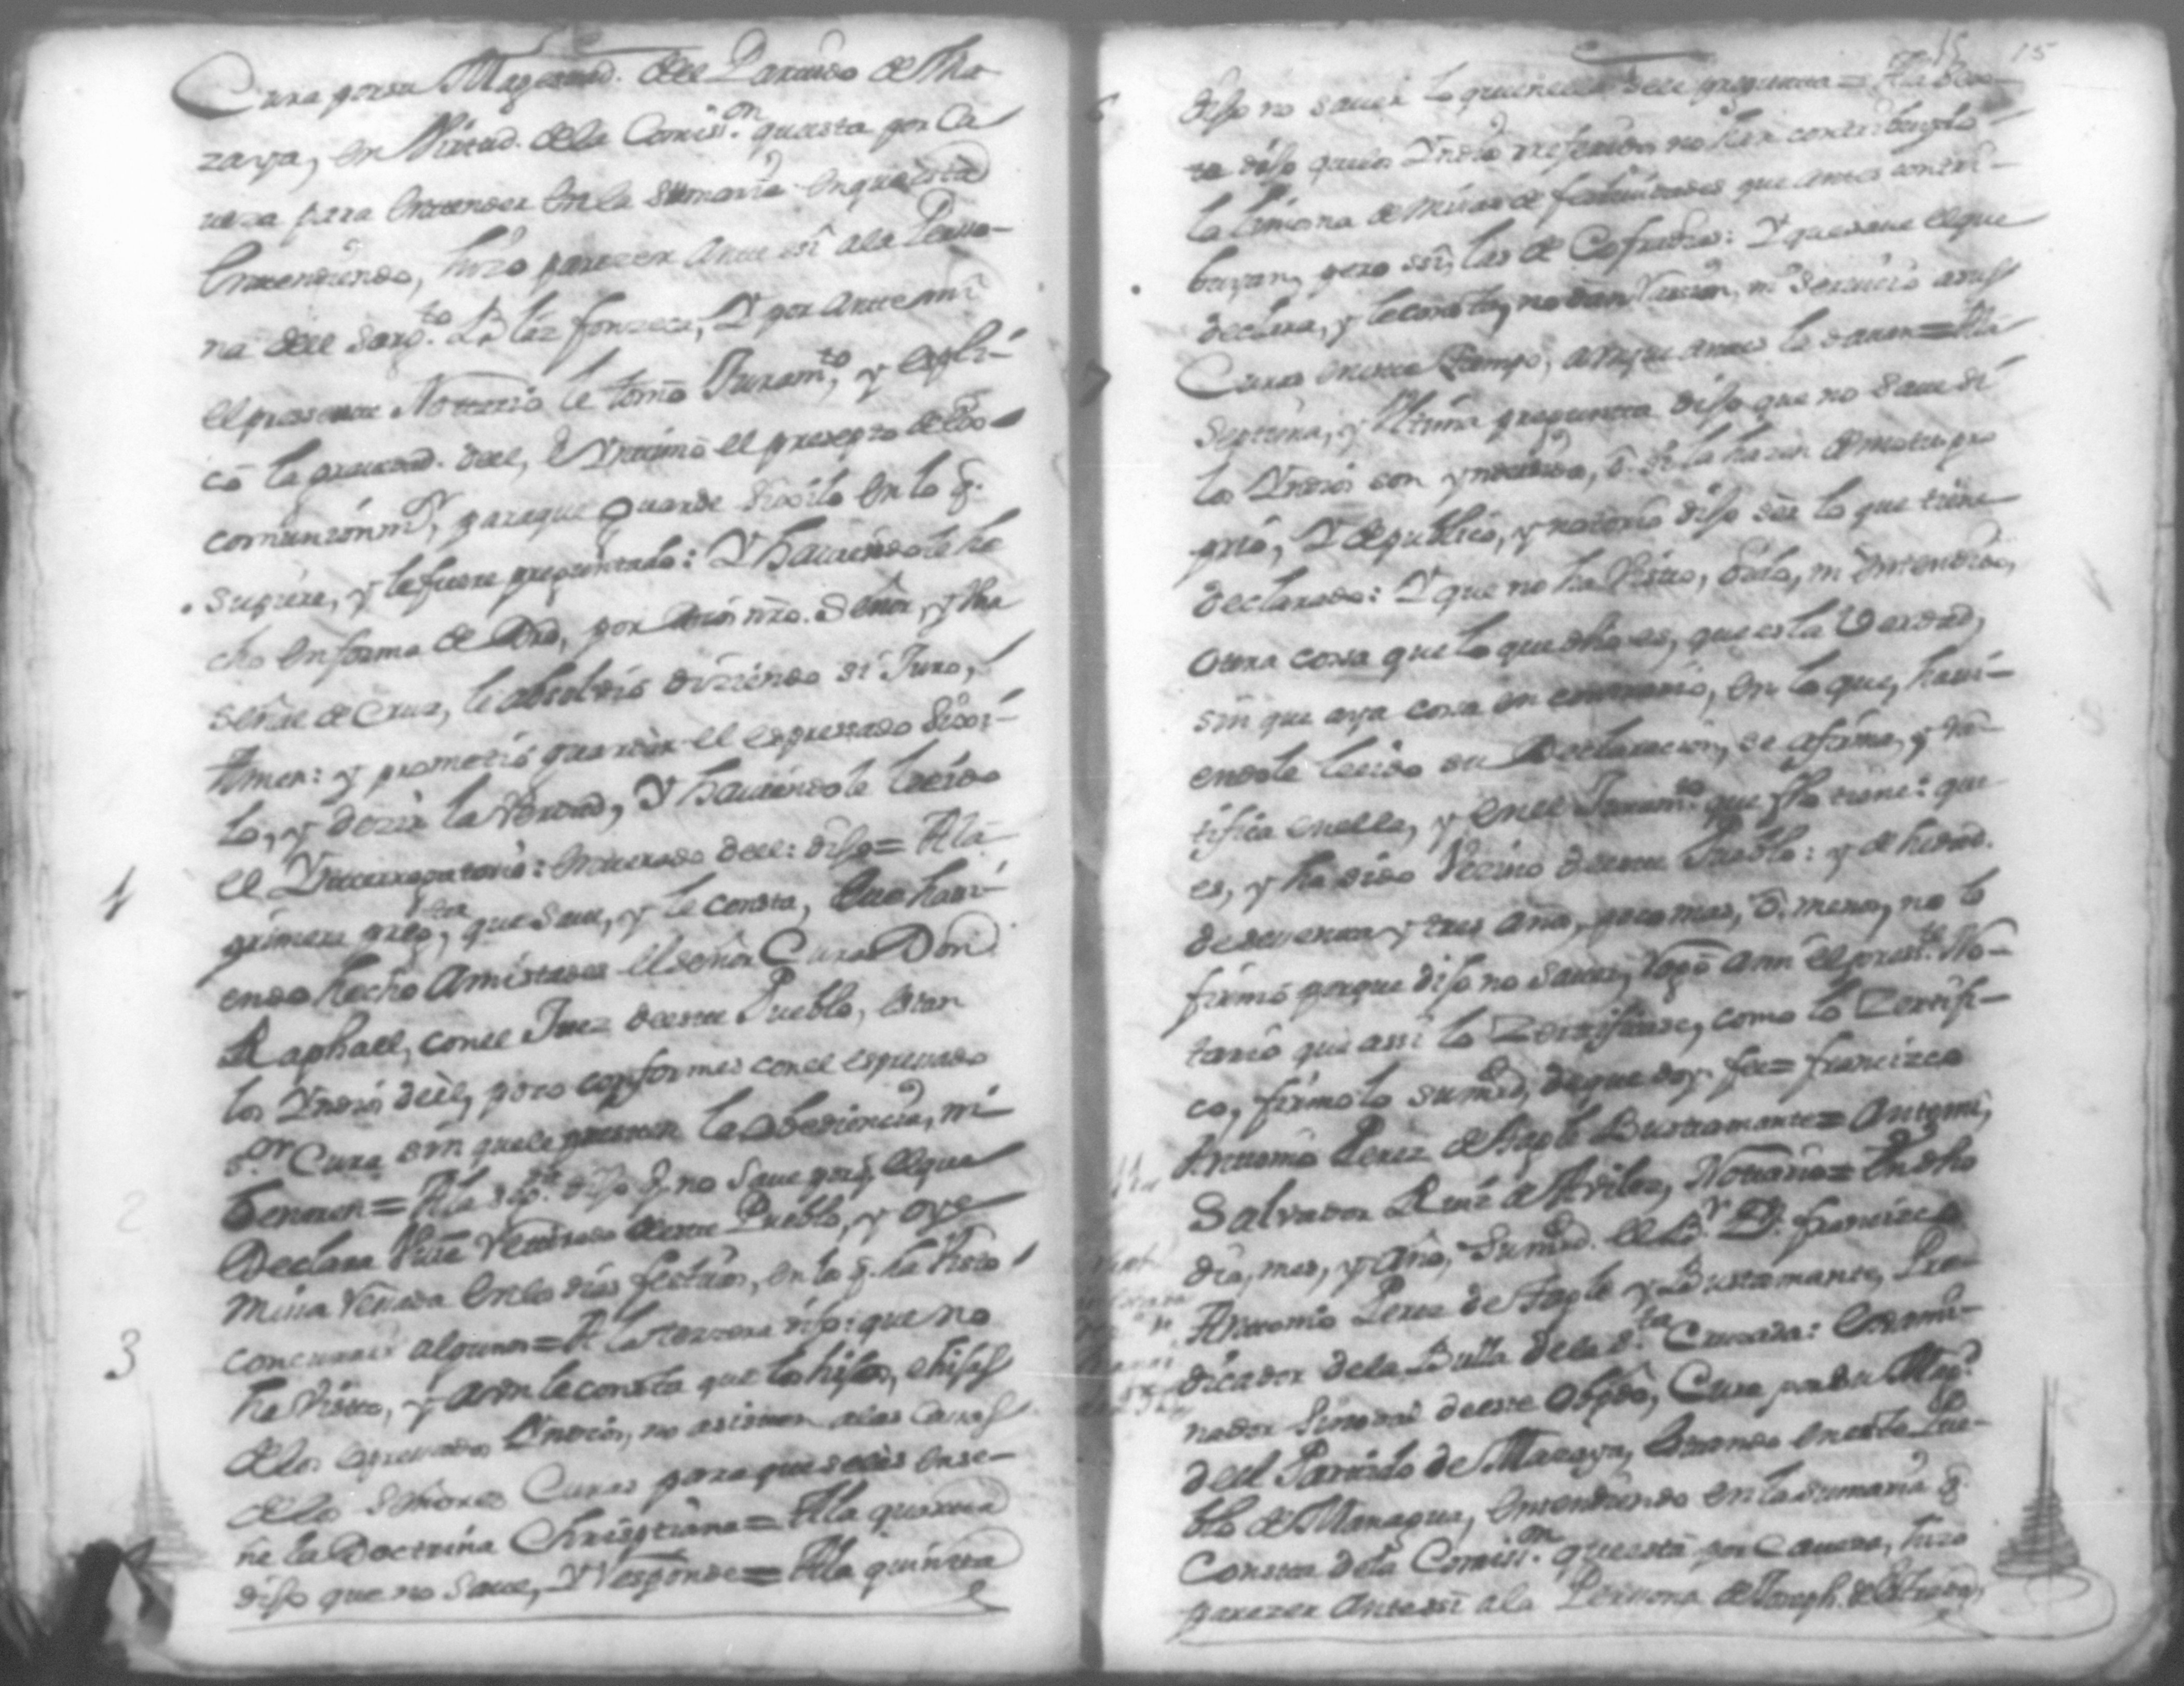 Cura por su Magestad. dell Partido de Ma-
zaya, en Virtud. de la Comiss.on questa por Ca
veza para entender en la sumaria en que està
entendiendo, hizo parezer ante si a la Perso-
na dell Sarg.to Blaz fonzeca, Y por ante mi
el pressente Nottario le tomò Juram.to, y expli-
cò la gravedad. dell, è Yntimò el presepto
para que Guarde Sixilo en lo q.
supiere, y le fuere preguntado: Y haviendole he
cho en forma de Dro, por Dios nro. Señor, y Una
señal de Cruz, le absolviò diziendo si Juro,
Amen: y prometiò guardar el expressado Sixi-
lo, y dezir la Verdad, Y haviendole leeido
el Ynterrogatorio: enterado dell: dixo= A la
1 primera pregta, que save, y le consta, que havi-
endo hecho Amistades el señor Cura Don
Raphael, con el Juez deeste Pueblo, estan
los Yndios dèl, poco conformes con el espresado
s.or Cura sin que le presten la obediencia, ni
2 temor= A la seg.da dixo q. no save por q. el que
Declara Vive retirado deeste Pueblo, y oye
missa rezada en los dias festivos, en la q. ha visto
3 concurrir algunos= A la terzera dixo: que no
ha visto, y aun le consta que los hijos, e hijas
de los espresados Yndios, no asisten a las Casas
de los Señores Curas para que se les ense-
ñe la Doctrina Chrisptiana= A la quarta
dixo que no save, Y responde= A la quinta
15 15
6 dixo no saver lo que en ella dell pregunta= A la sex-
ta dixo que los Yndios referidos no han contribuydo
la limosna de missas de festividades que antes contri-
buyan, pero sì, las de Cofradias: Y que save el que
declara, y le consta, no dan Razion, ni Servicio a sus
7 Curas eneste tiempo, aunque antes lo davan= A la
Septima, y Ultima pregunta dixo que no save si
los Yndios son ynducidos, ò si lo hazen de motu pro
prio, Y de publico, y notorio dixo ser lo que tiene
declarado: Y que no ha Visto, oido, ni entendido,
Otra cossa que lo que dho es, que es la Verdad,
sin que aya cosa en contrario, en lo que, havi-
endole leeido su Declaracion, se afirma, y ra-
tifica en ella, y en el Juram.to que fho tiene: que
es, y ha sido Vecino deeste Pueblo: y de hedad.
de setenta y tres años, poco mas, ò menos, no lo
firmò porque dixo no saver, rogò a mi el pres.te No-
tario que assi lo Zertificase, como lo Zertifi-
co, firmolo su mrd, de que doy fee= francizco
Antonio Perez de Tagle Bustamante= Ante mi,
Salvador Ruiz de Aviles, Nottario= En dho
dia, mes, y Año, Su mrd. el B.r D. francizco
Antonio Perez de Tagle y Bustamante, Pre-
dicador dela Bulla dela S.ta Cruzada: Exami-
nador Sinodal deeste Obpdo, Cura por Su Mag.d
dell Partido de Mazaya, estando eneste Pue-
blo de Managua, entendiendo en la sumaria q.
Consta dela Comiss.on questa por Caveza, hizo
parezer Ante si a la Persona de Joseph. de Estrada,